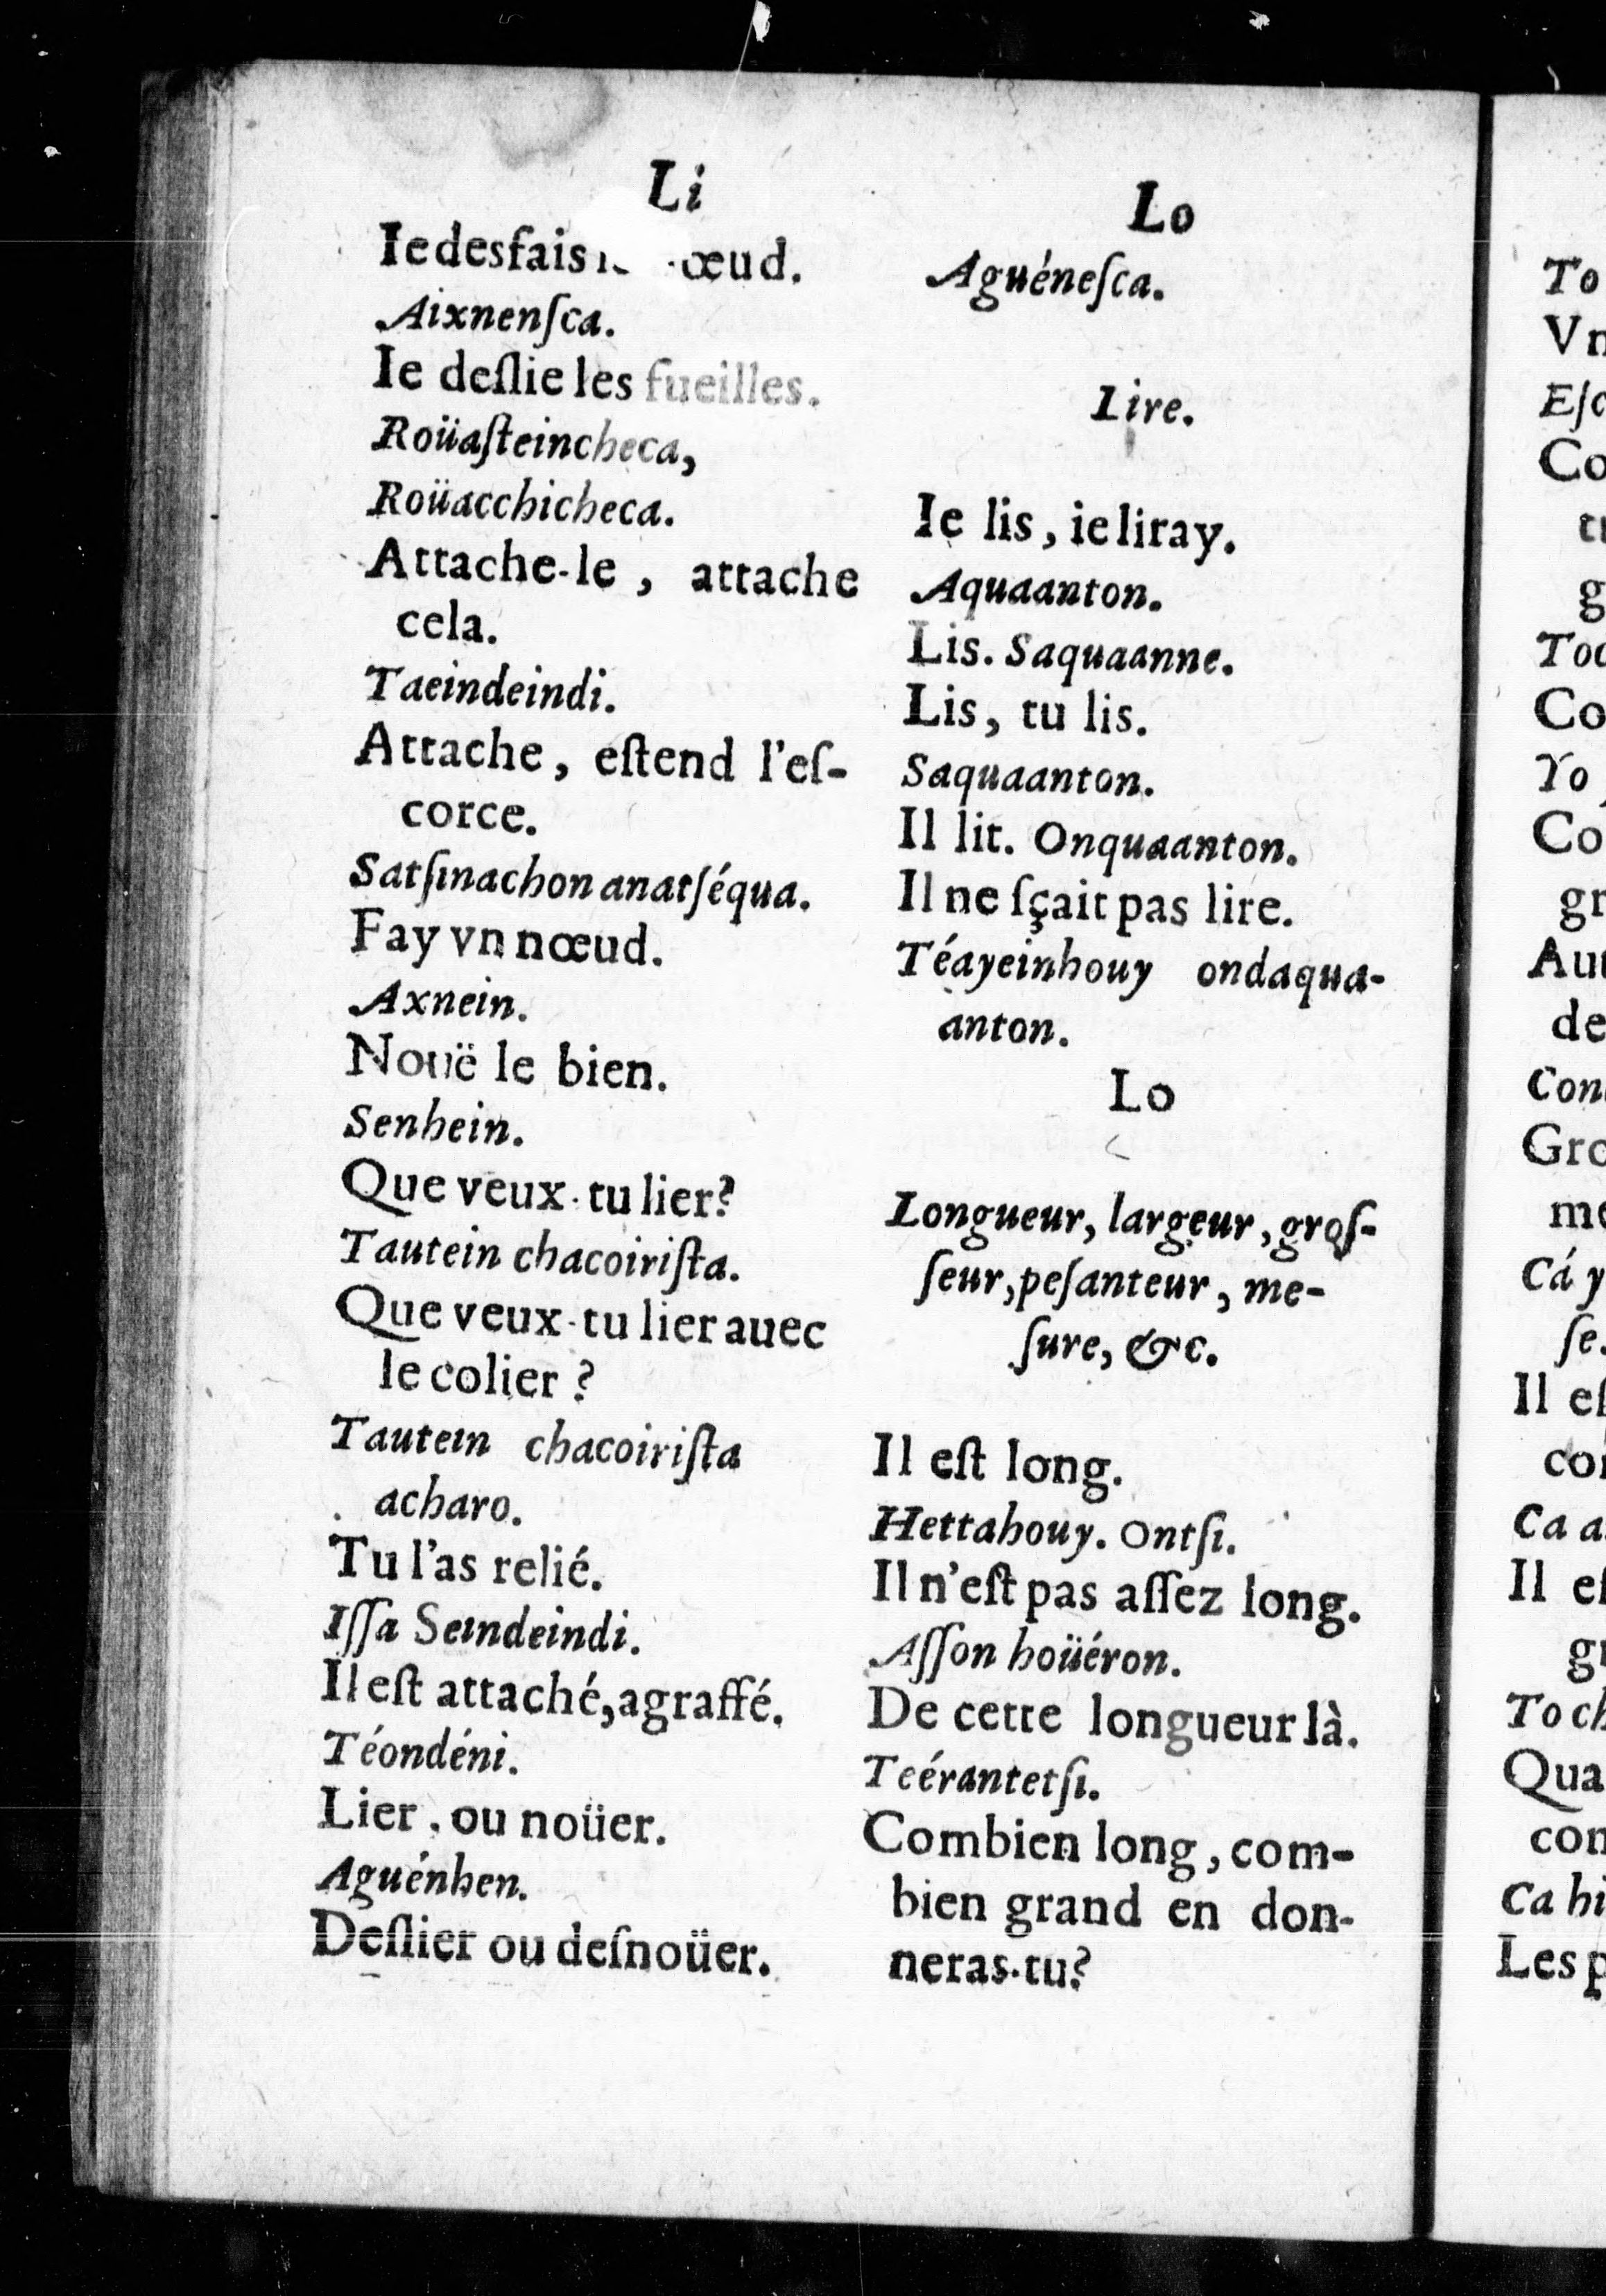 Li
Ie desfais œud.
Aixnenſca.
Ie deſlie les fueilles.
Roüaſteincheca,
Roüacchicheca.
Attache-le, attache
cela.
Taeindeindi.
Attache, eſtend l'eſ-
corce.
Satſinachon anatſéqua.
Fay vn nœud.
Axnein.
Nouë le bien.
Senhein.
Que veux-tu lier?
Tautein chacoiriſta.
Que veux-tu lier auec
le colier?
Tautein chacoiriſta
acharo.
Tu l'as relié.
Iſſa Seindeindi.
Il eſt attaché, agraffé.
Téondéni.
Lier, ou noüer.
Aguénhen.
Deſlier ou deſnoüer.
Lo
Aguéneſca.
Lire.
Ie lis, ie liray.
Aquaanton.
Lis. Saquaanne.
Lis, tu lis.
Saquaanton.
Il lit. Onquaanton.
Il ne ſçait pas lire.
Téayeinhouy ondaqua-
anton.
Lo
Longueur, largeur, groſ-
ſeur, peſanteur, me-
ſure, &c.
Il eſt long.
Hettahouy. Ontſi.
Il n'eſt pas aſſez long.
Aſſon hoüéron.
De cette longueur là.
Teérantetſi.
Combien long, com-
bien grand en don-
neras-tu?
To
Vn
Eſc
Co
g
Co
Yo
Co
gr
Aut
de
Con
Gro
me
Cá y
ſe.
Il eſ
Ca a
Il eſ
To ch
Qua
com
Ca hi
Les p